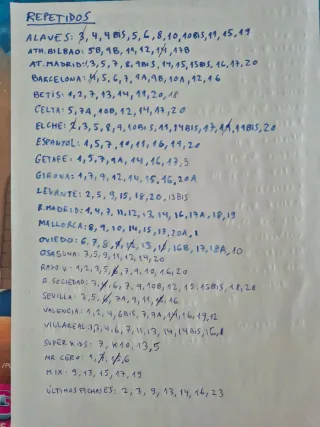 REPETIDOS
ALAVES: 3, 4, 4BIS, 5, 6, 8, 10, 10BIS, 11, 15, 19
ATH. BILBAO: 5B, 9B, 11, 12, 17B
AT. MADRID: 1, 3, 5, 7, 8, 9BIS, 14, 15, 15BIS, 16, 17, 20
BARCELONA: 4, 5, 6, 7, 9A, 9B, 10A, 12, 16
BETIS: 1, 2, 7, 13, 14, 19, 20, 18
CELTA: 5, 7A, 10B, 12, 14, 17, 20
ELCHE: 2, 3, 5, 8, 9, 10BIS, 11, 14BIS, 17, 19BIS, 20
ESPANYOL: 1, 5, 7, 10, 11, 16, 19, 20
GETAFE: 1, 5, 7, 9A, 14, 16, 17, 3
GIRONA: 1, 7, 9, 12, 14, 15, 16, 20A
LEVANTE: 2, 5, 9, 15, 18, 20, 13BIS
R. MADRID: 1, 4, 7, 11, 12, 13, 14, 16, 17A, 18, 19
MALLORCA: 8, 9, 10, 14, 15, 17, 20A, 1
OVIEDO: 6, 7, 8, 13, 16B, 17, 18A, 10
OSASUNA: 3, 5, 9, 11, 12, 14, 20
RAYO V: 1, 2, 3, 5, 6, 7, 9, 10, 16, 20
R. SOCIEDAD: 3, 4, 6, 7, 9, 10B, 12, 15, 15BIS, 18, 20
SEVILLA: 3, 5, 6, 7A, 9, 11, 16
VALENCIA: 1, 2, 4, 6BIS, 7, 9A, 16, 19, 12
VILLAREAL: 1, 3, 4, 6, 7, 11, 13, 14, 14BIS, 16, 8
SUPER KIDS: 7, 10, 13, 5
MR CERO: 1, 6
MIX: 9, 13, 15, 17, 19
ÚLTIMOS FICHAJES: 2, 3, 9, 13, 14, 16, 23